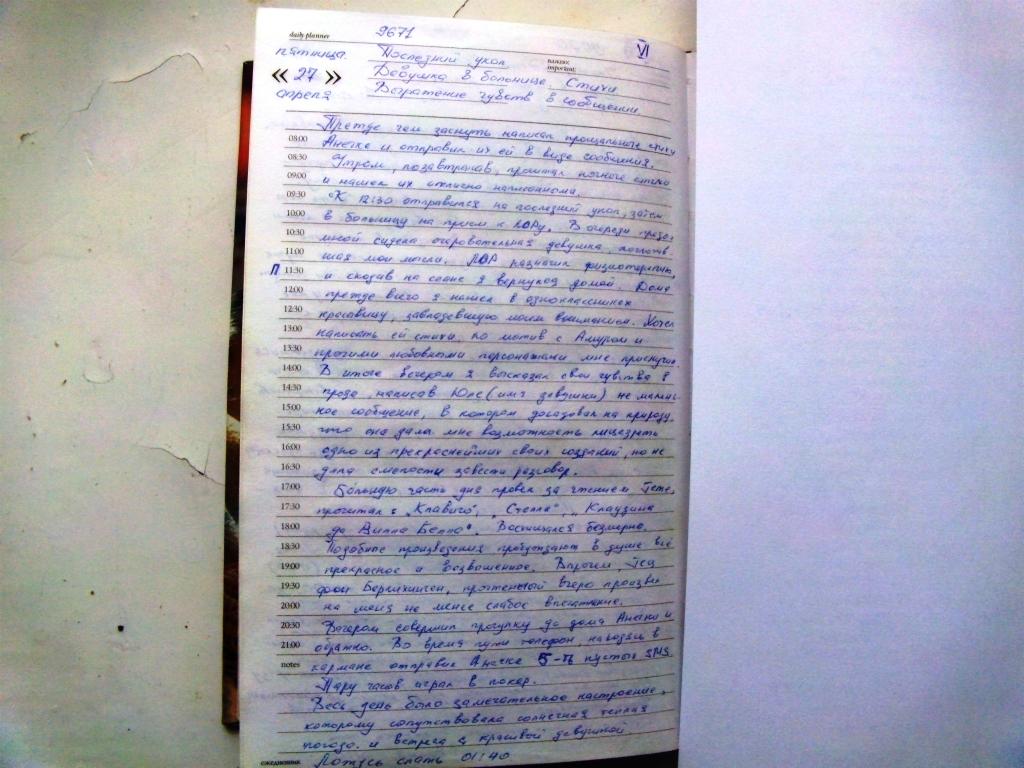 daily planner 9671 VI
пятница Последний укол важно:
important:
« 27 » Девушка в больнице Стихи
апреля Выражение чувств в сообщении
Прежде чем заснуть написал прощальные стихи
08:00 Анечке и отправил их ей в виде сообщения.
08:30 Утром, позавтракав, прочитал ночные стихи
09:00 и нашел их отлично написанными.
09:30 К 12:30 отправился на последний укол, затем
10:00 в больницу на прием к ЛОРу. В очереди предо
10:30 мной сидела очаровательная девушка, поглотив-
11:00 шая мои мысли. ЛОР назначил физиотерапию,
П 11:30 и сходив на сеанс я вернулся домой. Дома
12:00 прежде всего я нашел в одноклассниках
12:30 красавицу, завладевшую моим вниманием. Хотел
13:00 написать ей стихи, но мотив с Амуром и
13:30 прочими любовными персонажами мне прискучил.
14:00 В итоге вечером я высказал свои чувства в
14:30 прозе, написав Юле (имя девушки) не малень-
15:00 кое сообщение, в котором досадовал на природу,
15:30 что она дала мне возможность лицезреть
16:00 одно из прекраснейших своих созданий, но не
16:30 дала смелости завести разговор.
17:00 Большую часть дня провел за чтением Гете,
17:30 прочитал: „Клавиго", „Стелла", „Клаудина
18:00 де Вилла Белла". Восхищался безмерно.
18:30 Подобные произведения пробуждают в душе всё
19:00 прекрасное и возвышенное. Впрочем Гец
19:30 фон Берлихинген, прочтенный вчера произвел
20:00 на меня не менее слабое впечатление.
20:30 Вечером совершил прогулку до дома Анечки и
21:00 обратно. Во время пути телефон, находясь в
notes кармане отправил Анечке 5-ть пустых SMS.
Пару часов играл в покер.
Весь день было замечательное настроение,
которому сопутствовала солнечная теплая
погода и встреча с красивой девушкой.
ежедневник Ложусь спать 01:40